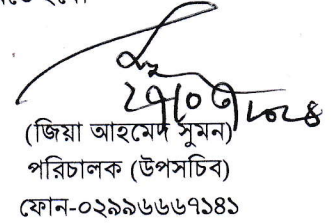 (জিয়া আহমেদ সুমন)
পরিচালক (উপসচিব)
ফোন-০২৯৯৬৬৬৭১৪১